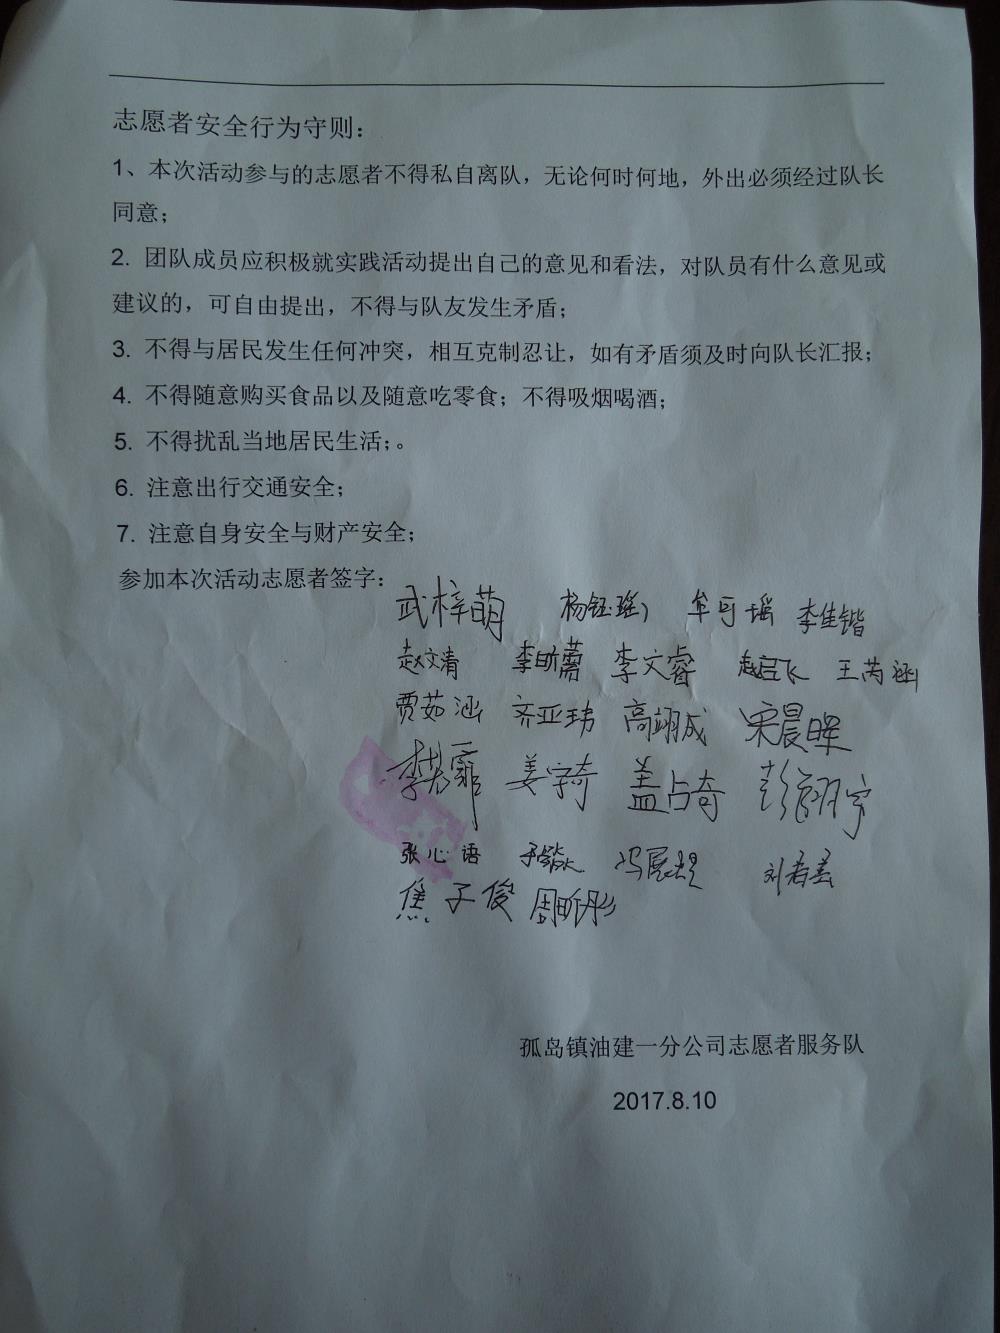 志愿者安全行为守则：
1、本次活动参与的志愿者不得私自离队，无论何时何地，外出必须经过队长
同意；
2. 团队成员应积极就实践活动提出自己的意见和看法，对队员有什么意见或
建议的，可自由提出，不得与队友发生矛盾；
3. 不得与居民发生任何冲突，相互克制忍让，如有矛盾须及时向队长汇报；
4. 不得随意购买食品以及随意吃零食；不得吸烟喝酒；
5. 不得扰乱当地居民生活；。
6. 注意出行交通安全；
7. 注意自身安全与财产安全；
参加本次活动志愿者签字：
武梓萌 杨钰瑶 牟可瑶 李佳锴
赵文清 李昕蕾 李文睿 赵启飞 王芮涵
贾茹涵 齐亚玮 高翊成 宋晨晖
姜宇奇 盖占奇 彭翊宇
张心语 冯展超
焦子俊 周昕彤
孤岛镇油建一分公司志愿者服务队
2017.8.10